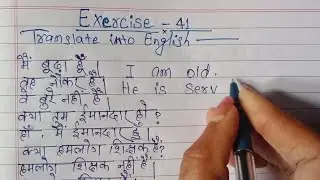 Exercise - 41
Translate into English
मैं बुढ़ा हूँ। I am old.
वह नौकर है। He is serv
वे चुर नहीं हैं।
क्या तुम ईमानदार हो?
हाँ, मैं ईमानदार हूँ।
क्या हमलोग शिक्षक हैं?
हमलोग शिक्षक नहीं हैं।